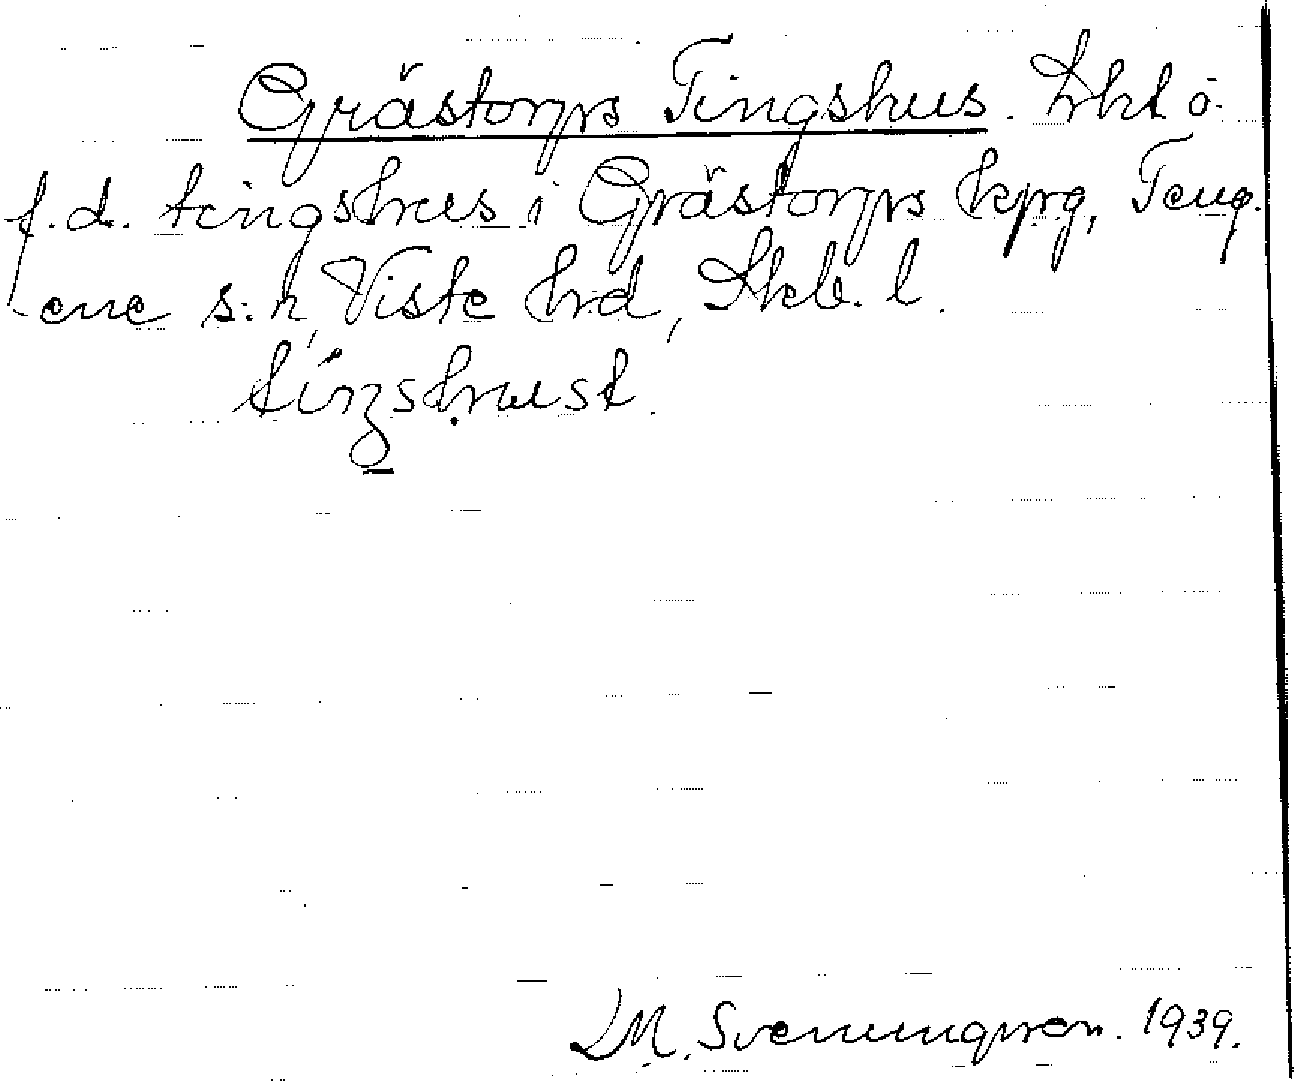 Grästorps Tingshus. trkt o.
f.d. tingshus i Grästorps kpg, Teng-
ene s:n, Viste hrd, Skb. l.
tiŋshust.
M. Svenungsson. 1939.